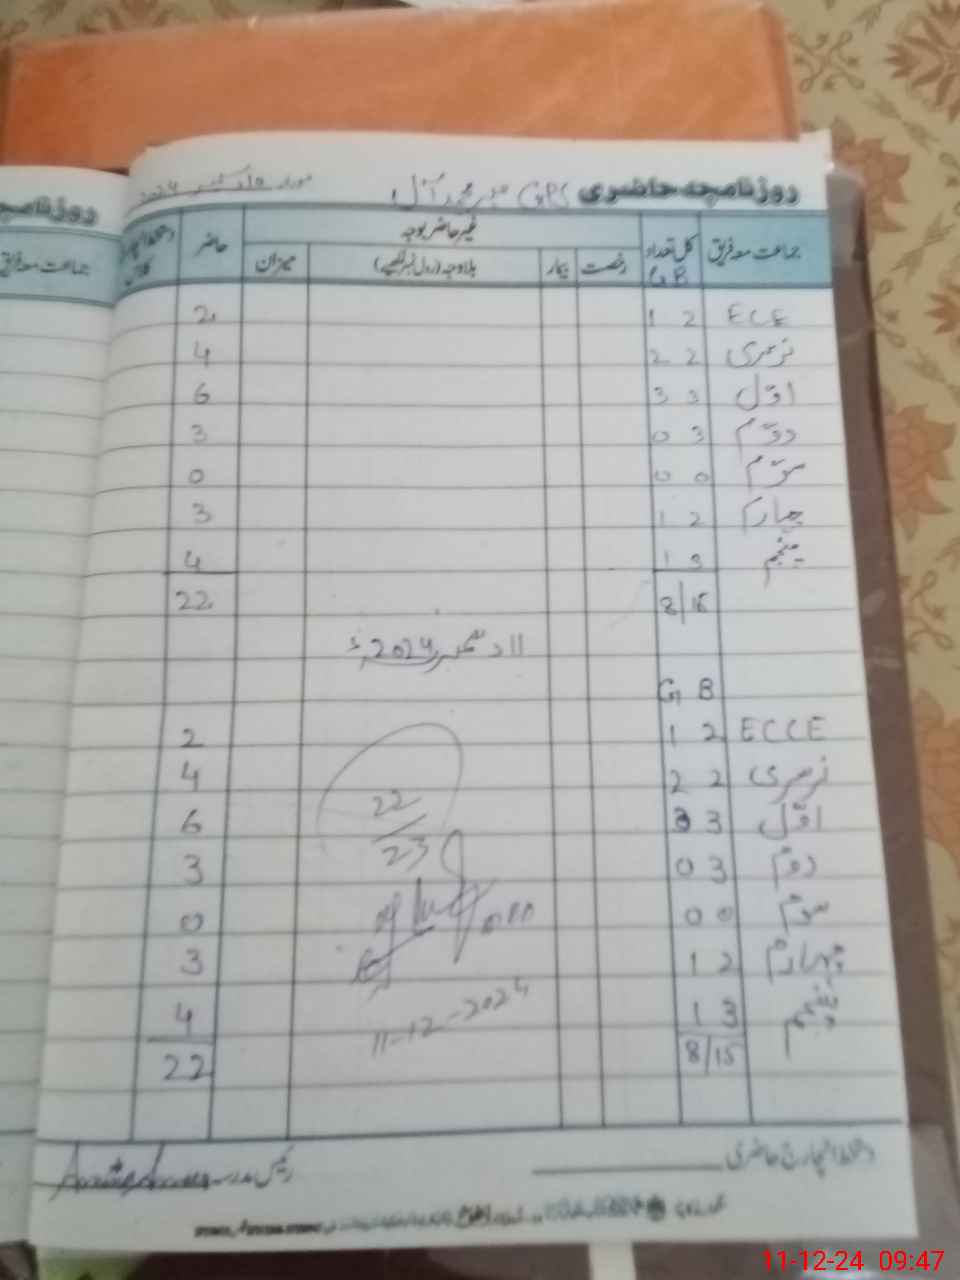 روزنامچہ حاضری GPS
جماعت معہ فریق کل تعداد غیر حاضر بوجہ حاضر
G B رخصت بیمار بلاوجہ (رول نمبر لکھیے) میزان
ECE 2 1 2
نرسری 2 2 4
اوّل 3 3 6
دوّم 3 0 3
سوّم 0 0 0
چہارم 2 1 3
پنجم 3 1 4
8/15 22
11 دسمبر 2024ء
G B
ECCE 2 1 2
نرسری 2 2 4
اوّل 3 3 6
دوّم 3 0 3
سوّم 0 0 0
چہارم 2 1 3
پنجم 3 1 4
8/15 22
22/23
11-12-2024
دستخط انچارج حاضری رئیس مدرسہ
روزنامچہ
جماعت معہ فریق
11-12-24 09:47